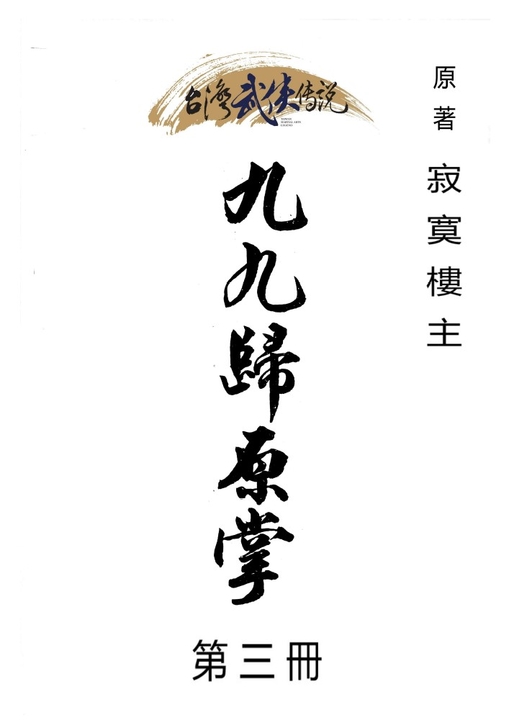 台灣武俠傳說
原著 寂寞樓主
九九歸原掌
第三冊